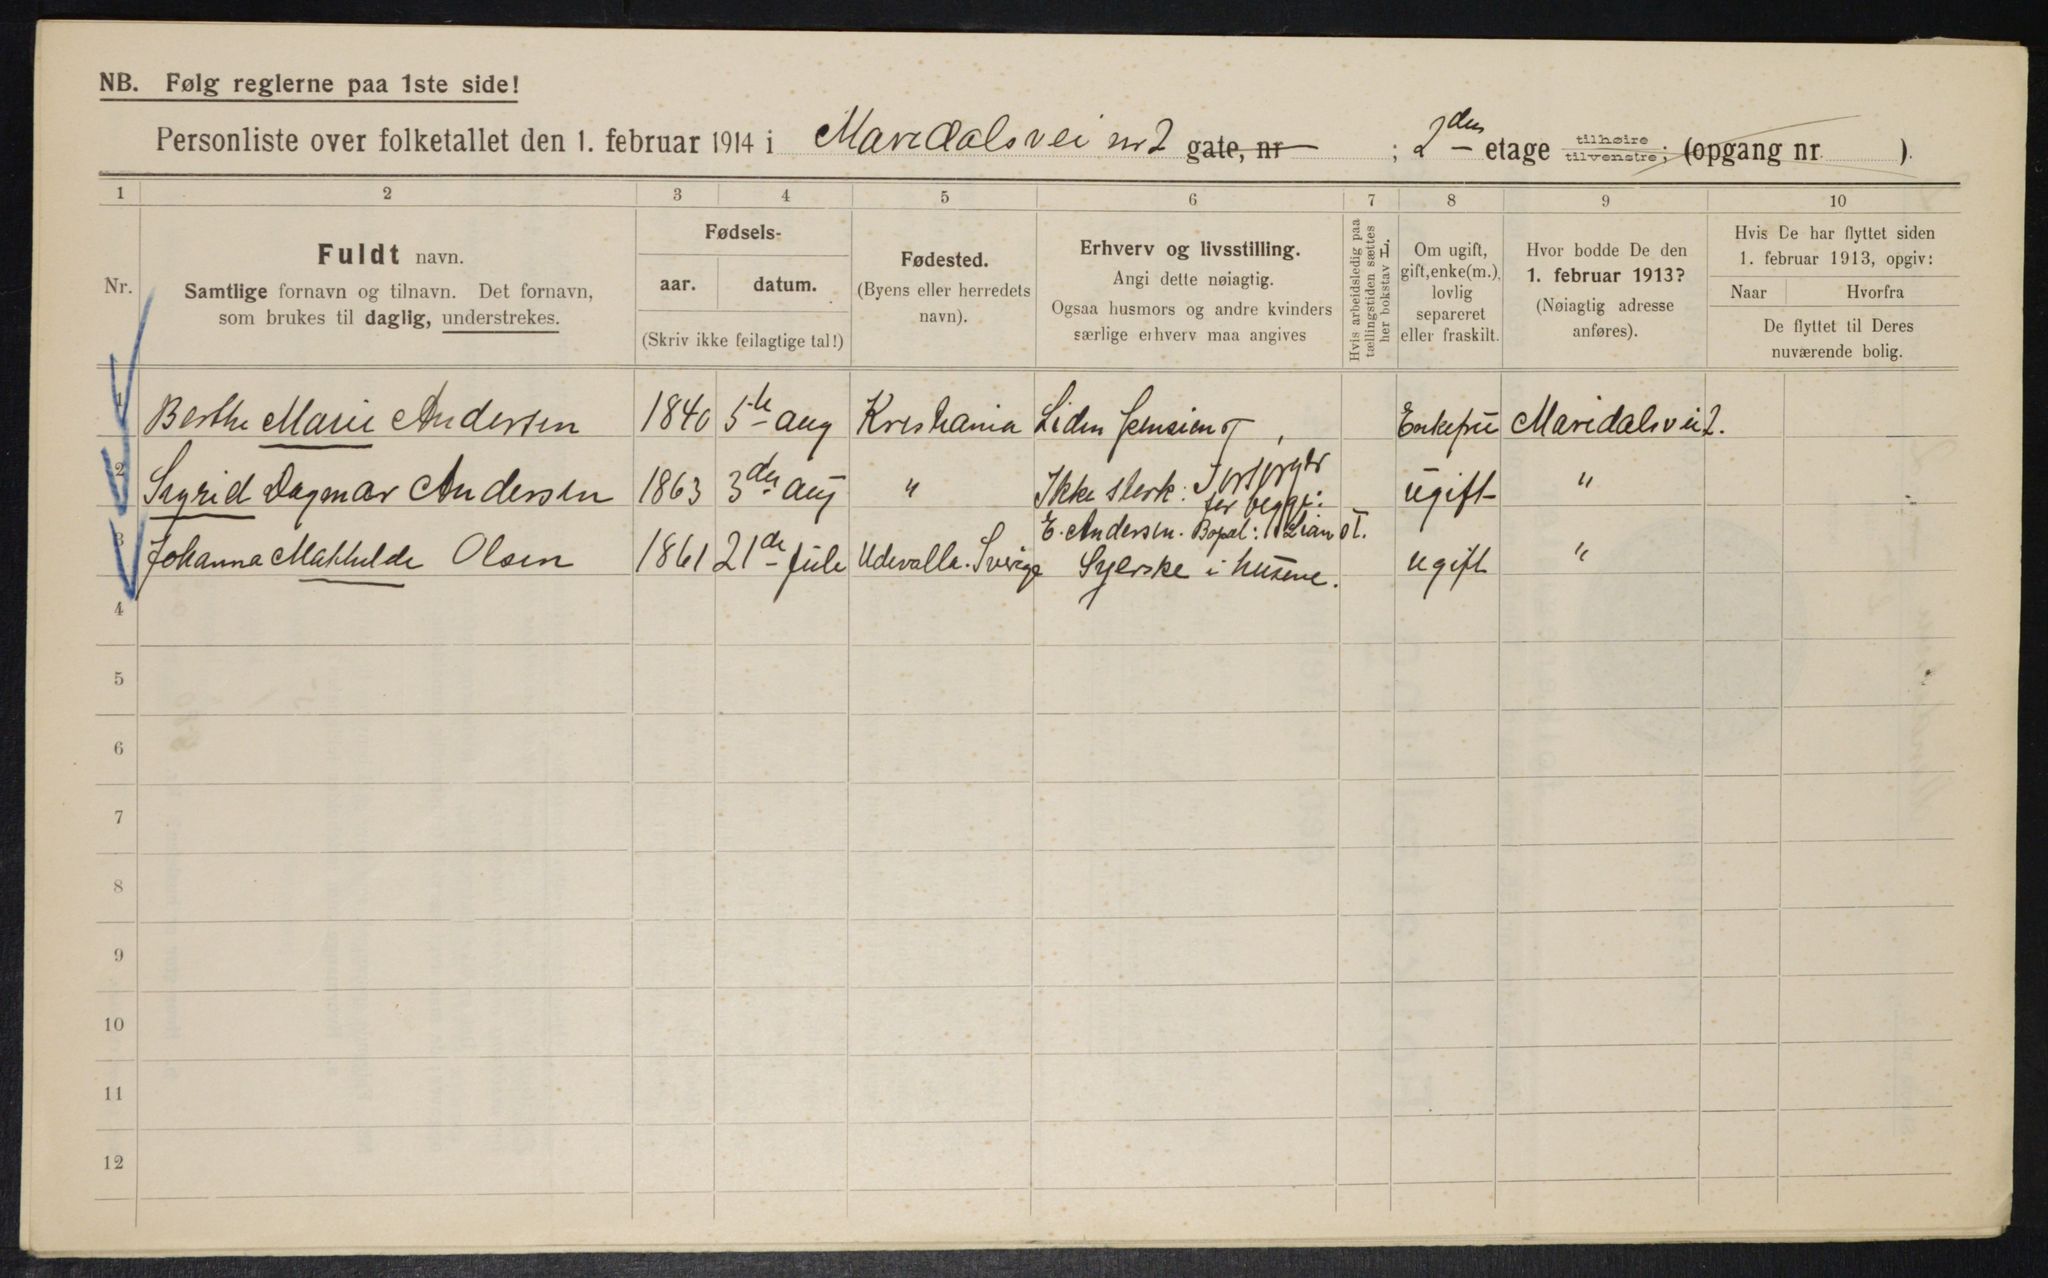 NB. Følg reglerne paa 1ste side!
Personliste over folketallet den 1. februar 1914 i Maridalsvei nr 2 gate, nr ; 2den etage tilhøire tilvenstre; (opgang nr )
1 2 3 4 5 6 7 8 9 10
Nr.
Fuldt navn.
Samtlige fornavn og tilnavn. Det fornavn,
som brukes til daglig, understrekes.
Fødsels-
aar. datum.
(Skriv ikke feilagtige tal!)
Fødested.
(Byens eller herredets
navn).
Erhverv og livsstilling.
Angi dette nøiagtig.
Ogsaa husmors og andre kvinders
særlige erhverv maa angives
Hvis arbeidsledig paa
tællingstiden sættes
her bokstav L.
Om ugift,
gift, enke(m.),
lovlig
separeret
eller fraskilt.
Hvor bodde De den
1. februar 1913?
(Nøiagtig adresse
anføres).
Hvis De har flyttet siden
1. februar 1913, opgiv:
Naar Hvorfra
De flyttet til Deres
nuværende bolig.
1 Berthe Marie Andersen 1840 5te aug Kristiania Liden pension Enkefru Maridalsvei 2.
2 Sigrid Dagmar Andersen 1863 3den aug " Ikke sterk: Forsørger for begge: ugift "
E. Andersen. Bopæl:
3 Johanna Mathilde Olsen 1861 21de Juli Udevalla. Sverige Syerske i husene. ugift "
4
5
6
7
8
9
10
11
12